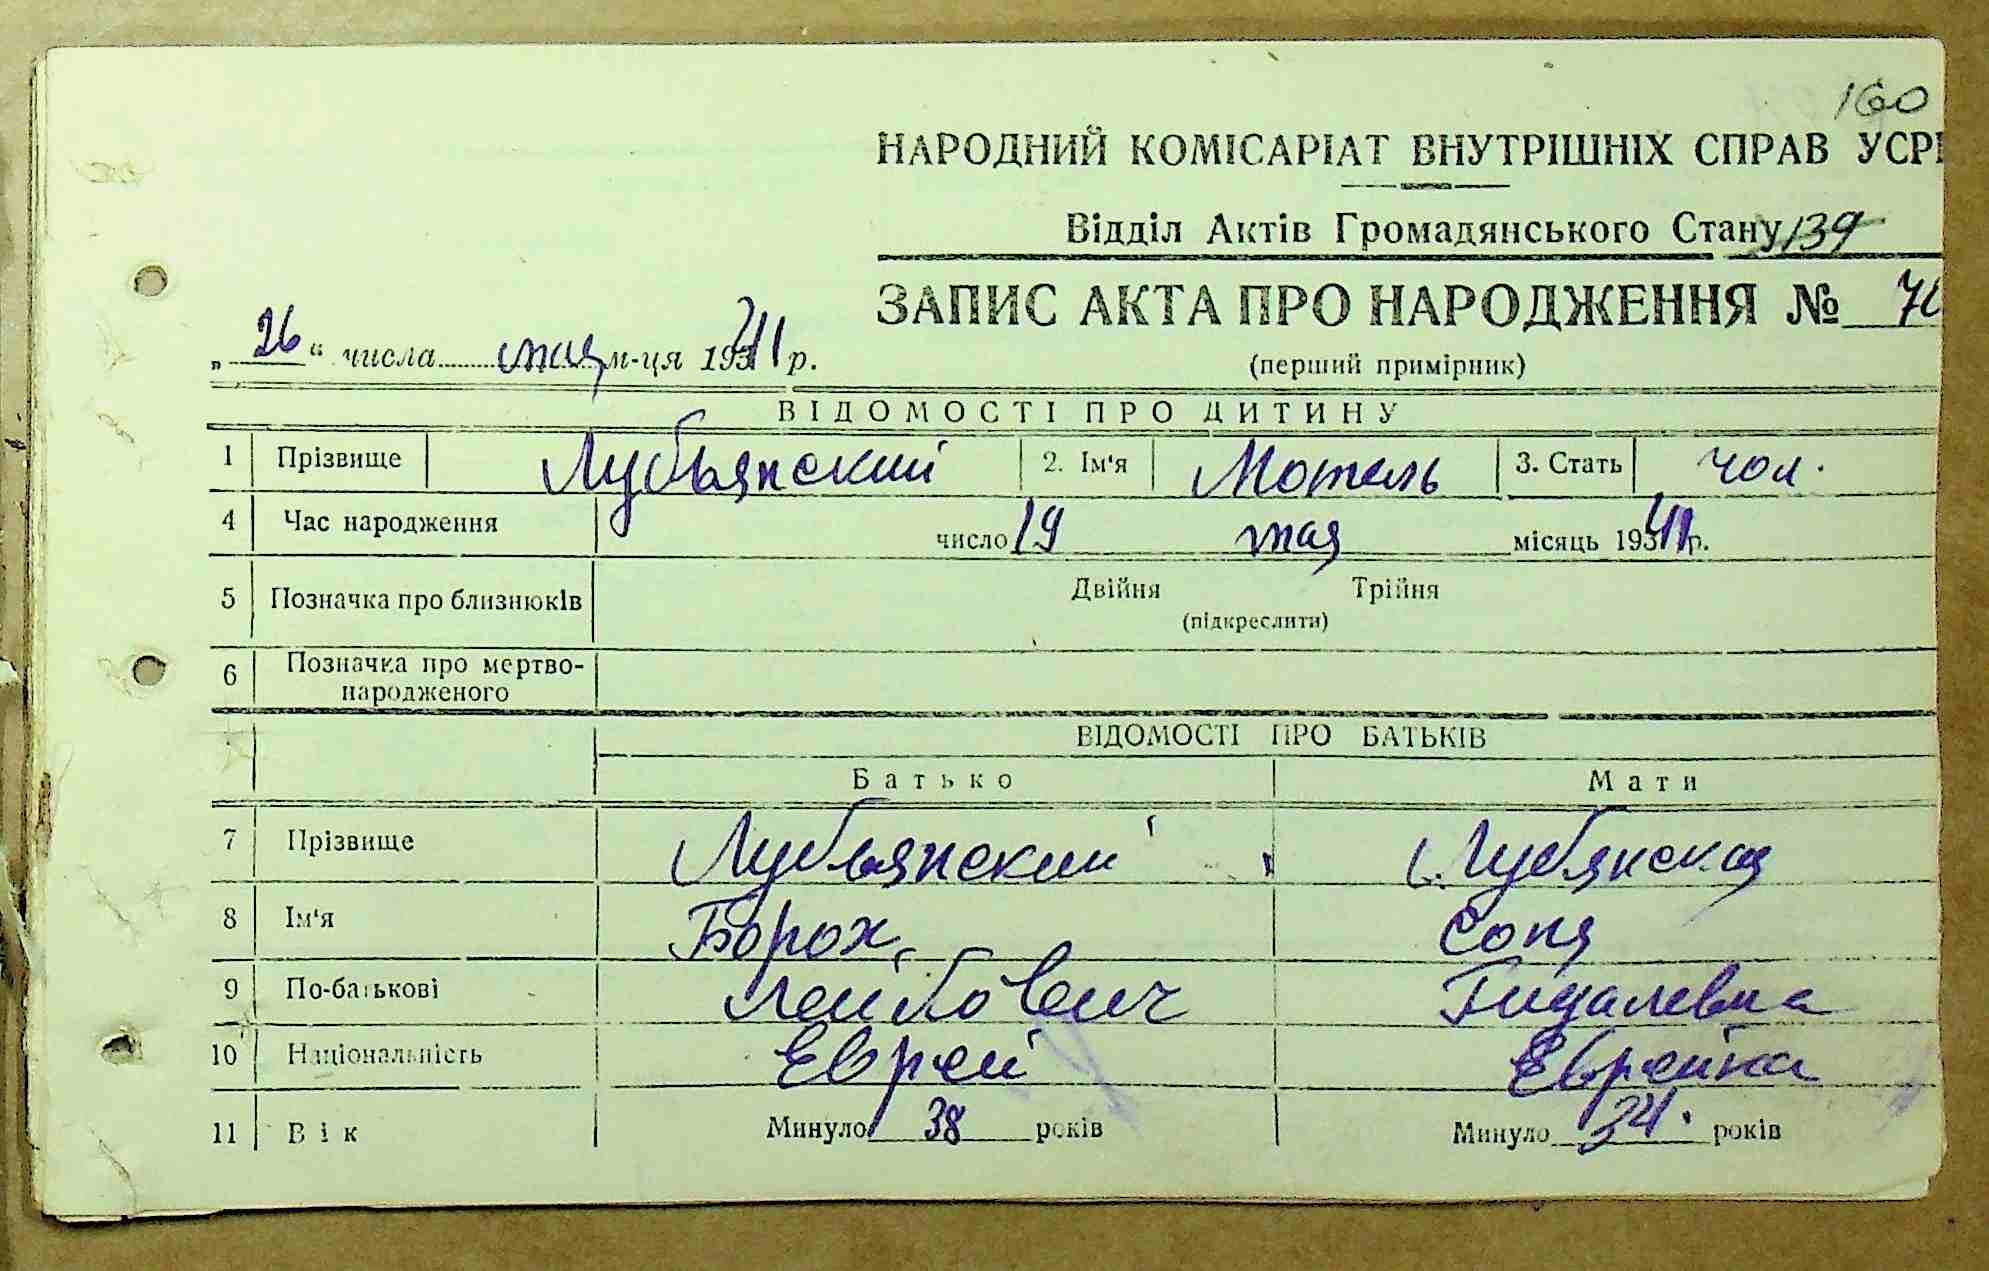 160
НАРОДНИЙ КОМІСАРІАТ ВНУТРІШНІХ СПРАВ УСРР
Відділ Актів Громадянського Стану 139
ЗАПИС АКТА ПРО НАРОДЖЕННЯ №
„26“ числа мая м-ця 1941 р.
(перший примірник)
ВІДОМОСТІ ПРО ДИТИНУ
1 Прізвище Лубьянский 2. Ім'я Мотель 3. Стать чол.
4 Час народження число 19 мая місяць 1941 р.
5 Позначка про близнюків Двійня Трійня
(підкреслити)
6 Позначка про мертво-
народженого
ВІДОМОСТІ ПРО БАТЬКІВ
Батько Мати
7 Прізвище Лубьянский Лубянская
8 Ім'я Борох Соня
9 По-батькові Лейбович Гидалевна
10 Національність Еврей Еврейка
11 Вік Минуло 38 років Минуло 34 років